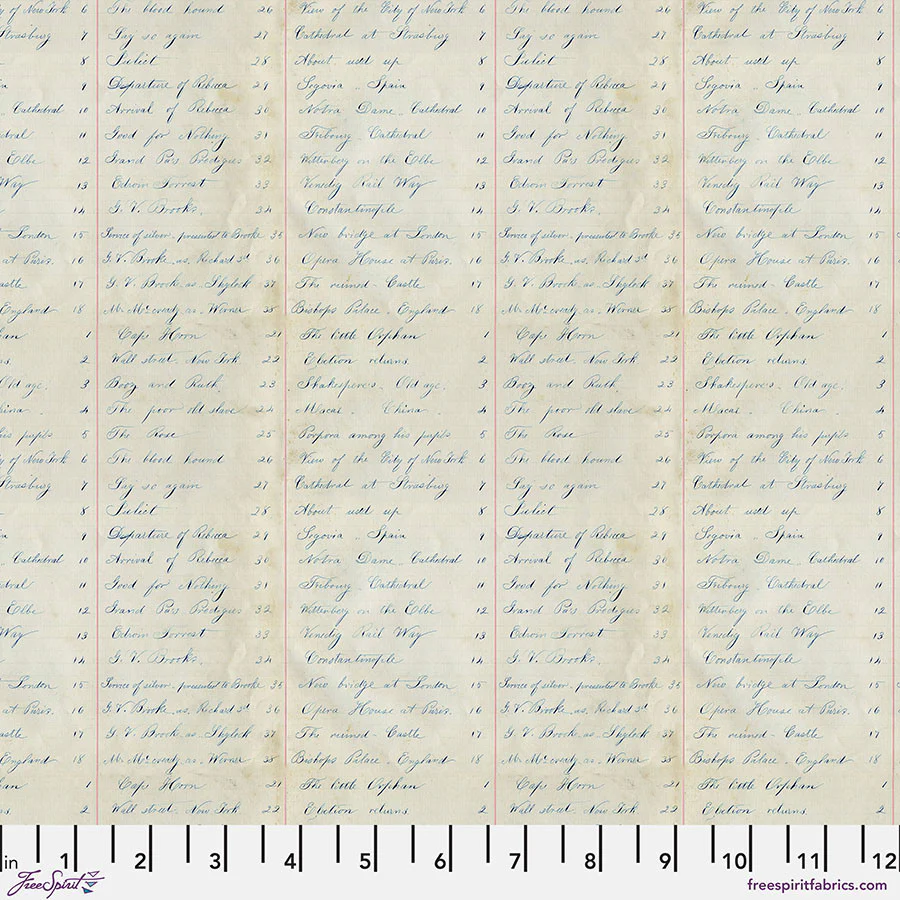 y of New York 6 The blood hound 26 View of the City of New York 6 The blood hound 26 View of the City of New York 6
Strasburg 7 Say so again 27 Cathedral at Strasburg 7 Say so again 27 Cathedral at Strasburg 7
8 Juliet 28 About used up 8 Juliet 28 About used up 8
9 Departure of Rebecca 29 Segovia .. Spain 9 Departure of Rebecca 29 Segovia .. Spain 9
Cathedral 10 Arrival of Rebecca 30 Notra Dame. Cathedral 10 Arrival of Rebecca 30 Notra Dame. Cathedral 10
dral 11 Good for Nothing 31 Fribourg Cathedral 11 Good for Nothing 31 Fribourg Cathedral 11
Elbe 12 Grand Pa's Prodigies 32 Wittenberg on the Elbe 12 Grand Pa's Prodigies 32 Wittenberg on the Elbe 12
Way 13 Edwin Forrest 33 Rail Way 13 Edwin Forrest 33 Rail Way 13
14 G. V. Brooke. 34 Constantinople 14 G. V. Brooke. 34 Constantinople 14
London 15 of silver. presented to Brooke 35 New bridge at London 15 of silver. presented to Brooke 35 New bridge at London 15
at Paris. 16 G. V. Brooke. as. Richard 3d 36 Opera House at Paris. 16 G. V. Brooke. as. Richard 3d 36 Opera House at Paris. 16
astle 17 G. V. Brooke as Shylock 37 The ruined - Castle 17 G. V. Brooke as Shylock 37 The ruined - Castle 17
England 18 Mr. McCready as. Werner 38 Bishops Palace. England 18 Mr. McCready as. Werner 38 Bishops Palace. England 18
an 1 Cape Horn 21 The little Orphan 1 Cape Horn 21 The little Orphan 1
s. 2 Wall street. New York 22 Election returns. 2 Wall street. New York 22 Election returns. 2
Old age. 3 Booz and Ruth 23 Shakespere's. Old age. 3 Booz and Ruth 23 Shakespere's. Old age. 3
hina . 4 The poor old slave 24 Macai . China . 4 The poor old slave 24 Macai . China . 4
his pupils 5 The Rose 25 Porpora among his pupils 5 The Rose 25 Porpora among his pupils 5
y of New York 6 The blood hound 26 View of the City of New York 6 The blood hound 26 View of the City of New York 6
Strasburg 7 Say so again 27 Cathedral at Strasburg 7 Say so again 27 Cathedral at Strasburg 7
8 Juliet 28 About used up 8 Juliet 28 About used up 8
9 Departure of Rebecca 29 Segovia .. Spain 9 Departure of Rebecca 29 Segovia .. Spain 9
Cathedral 10 Arrival of Rebecca 30 Notra Dame. Cathedral 10 Arrival of Rebecca 30 Notra Dame. Cathedral 10
dral 11 Good for Nothing 31 Fribourg Cathedral 11 Good for Nothing 31 Fribourg Cathedral 11
Elbe 12 Grand Pa's Prodigies 32 Wittenberg on the Elbe 12 Grand Pa's Prodigies 32 Wittenberg on the Elbe 12
Way 13 Edwin Forrest 33 Rail Way 13 Edwin Forrest 33 Rail Way 13
14 G. V. Brooke. 34 Constantinople 14 G. V. Brooke. 34 Constantinople 14
London 15 of silver. presented to Brooke 35 New bridge at London 15 of silver. presented to Brooke 35 New bridge at London 15
at Paris. 16 G. V. Brooke. as. Richard 3d 36 Opera House at Paris. 16 G. V. Brooke. as. Richard 3d 36 Opera House at Paris. 16
astle 17 G. V. Brooke as Shylock 37 The ruined - Castle 17 G. V. Brooke as Shylock 37 The ruined - Castle 17
England 18 Mr. McCready as. Werner 38 Bishops Palace. England 18 Mr. McCready as. Werner 38 Bishops Palace. England 18
an 1 Cape Horn 21 The little Orphan 1 Cape Horn 21 The little Orphan 1
2 Wall street. New York 22 Election returns. 2 Wall street. New York 22 Election returns. 2
in 1 2 3 4 5 6 7 8 9 10 11 12
FreeSpirit
freespiritfabrics.com